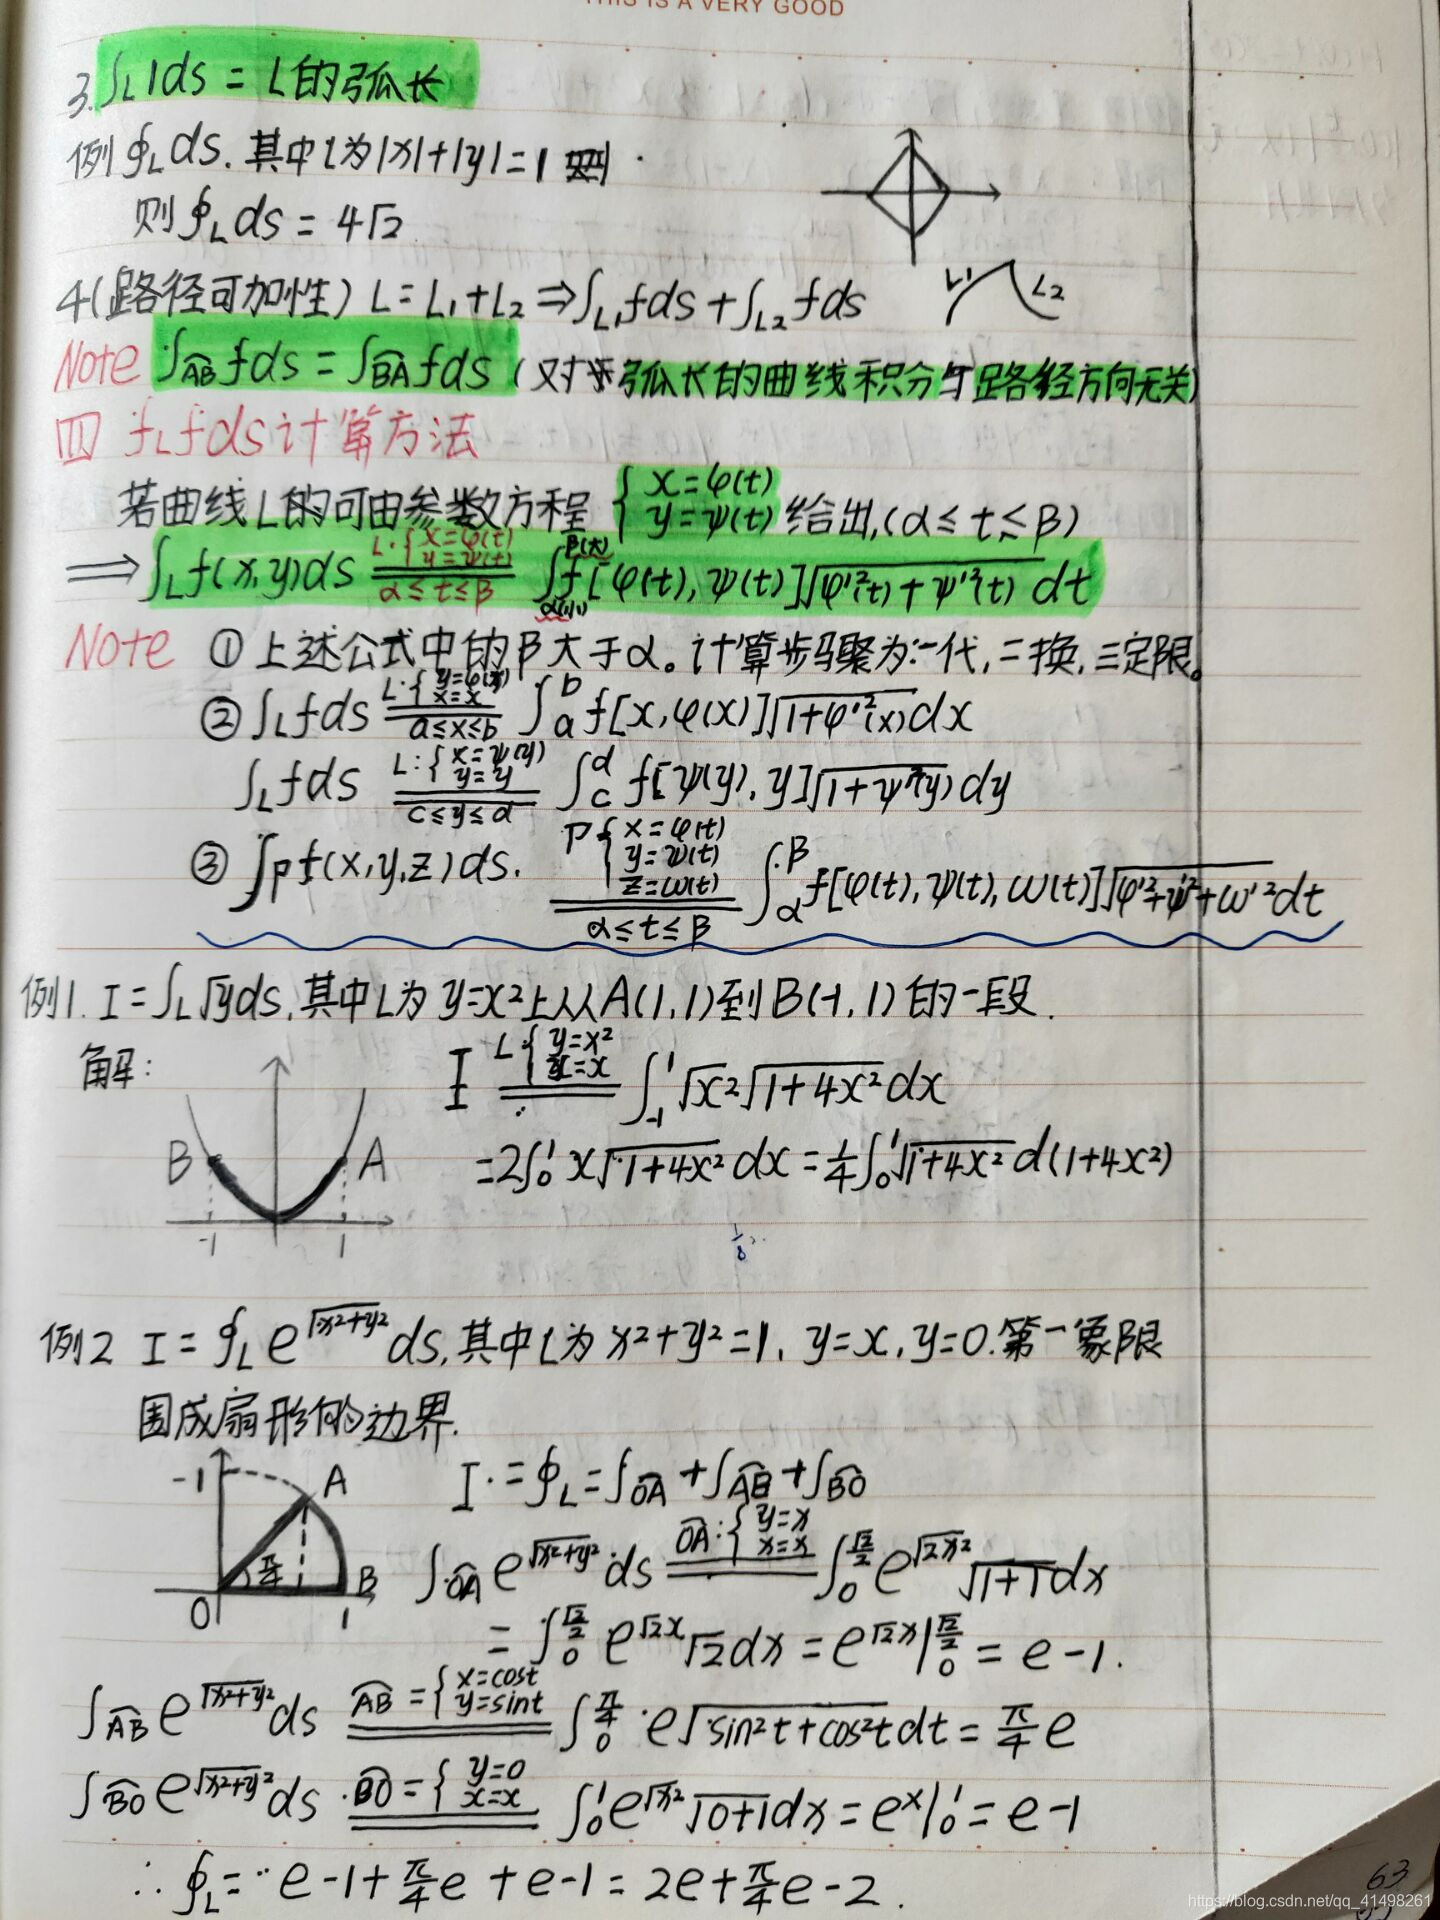 THIS IS A VERY GOOD
3. ∫_L 1ds = L的弧长
例 ∮_L ds. 其中L为|x|+|y|=1
则 ∮_L ds = 4√2
4(路径可加性) L=L₁+L₂ ⇒ ∫_{L₁} fds + ∫_{L₂} fds
L₁ L₂
Note ∫_{AB} fds = ∫_{BA} fds (对于弧长的曲线积分与路径方向无关)
四 ∫_L fds计算方法
若曲线L的可由参数方程 { x=φ(t) y=ψ(t) 给出,(α≤t≤β)
⇒ ∫_L f(x,y)ds L:{ x=φ(t) y=ψ(t) α≤t≤β ∫_{α(小)}^{β(大)} f[φ(t),ψ(t)]√(φ'²(t)+ψ'²(t)) dt
Note ①上述公式中的β大于α。计算步骤为:一代,二换,三定限。
② ∫_L fds L:{ y=φ(x) x=x a≤x≤b ∫_a^b f[x,φ(x)]√(1+φ'²(x)) dx
∫_L fds L:{ x=ψ(y) y=y c≤y≤d ∫_c^d f[ψ(y),y]√(1+ψ'²(y)) dy
③ ∫_Γ f(x,y,z)ds. Γ{ x=φ(t) y=ψ(t) z=ω(t) α≤t≤β ∫_α^β f[φ(t),ψ(t),ω(t)]√(φ'²+ψ'²+ω'²) dt
例1. I=∫_L √y ds,其中L为 y=x²上从A(1,1)到B(-1,1)的一段.
解: I L:{ y=x² x=x = ∫_{-1}^1 √x² √(1+4x²) dx
B A -1 1
=2∫_0^1 x√(1+4x²) dx = 1/4 ∫_0^1 √(1+4x²) d(1+4x²)
例2 I=∮_L e^{√(x²+y²)} ds,其中L为 x²+y²=1, y=x, y=0.第一象限
围成扇形的边界.
-1 A B O 1 π/4
I=∮_L=∫_{OA}+∫_{AB}+∫_{BO}
∫_{OA} e^{√(x²+y²)} ds OA:{ y=x x=x = ∫_0^{√2/2} e^{√(2x²)} √(1+1) dx
= ∫_0^{√2/2} e^{√2x} √2 dx = e^{√2x}|_0^{√2/2} = e-1.
∫_{AB} e^{√(x²+y²)} ds AB={ x=cost y=sint = ∫_0^{π/4} e√(sin²t+cos²t) dt = π/4 e
∫_{BO} e^{√(x²+y²)} ds BO={ y=0 x=x = ∫_0^1 e^{√x²} √(0+1) dx = e^x|_0^1 = e-1
∴ ∮_L = e-1+π/4 e+e-1 = 2e+π/4 e-2.
63
https://blog.csdn.net/qq_41498261